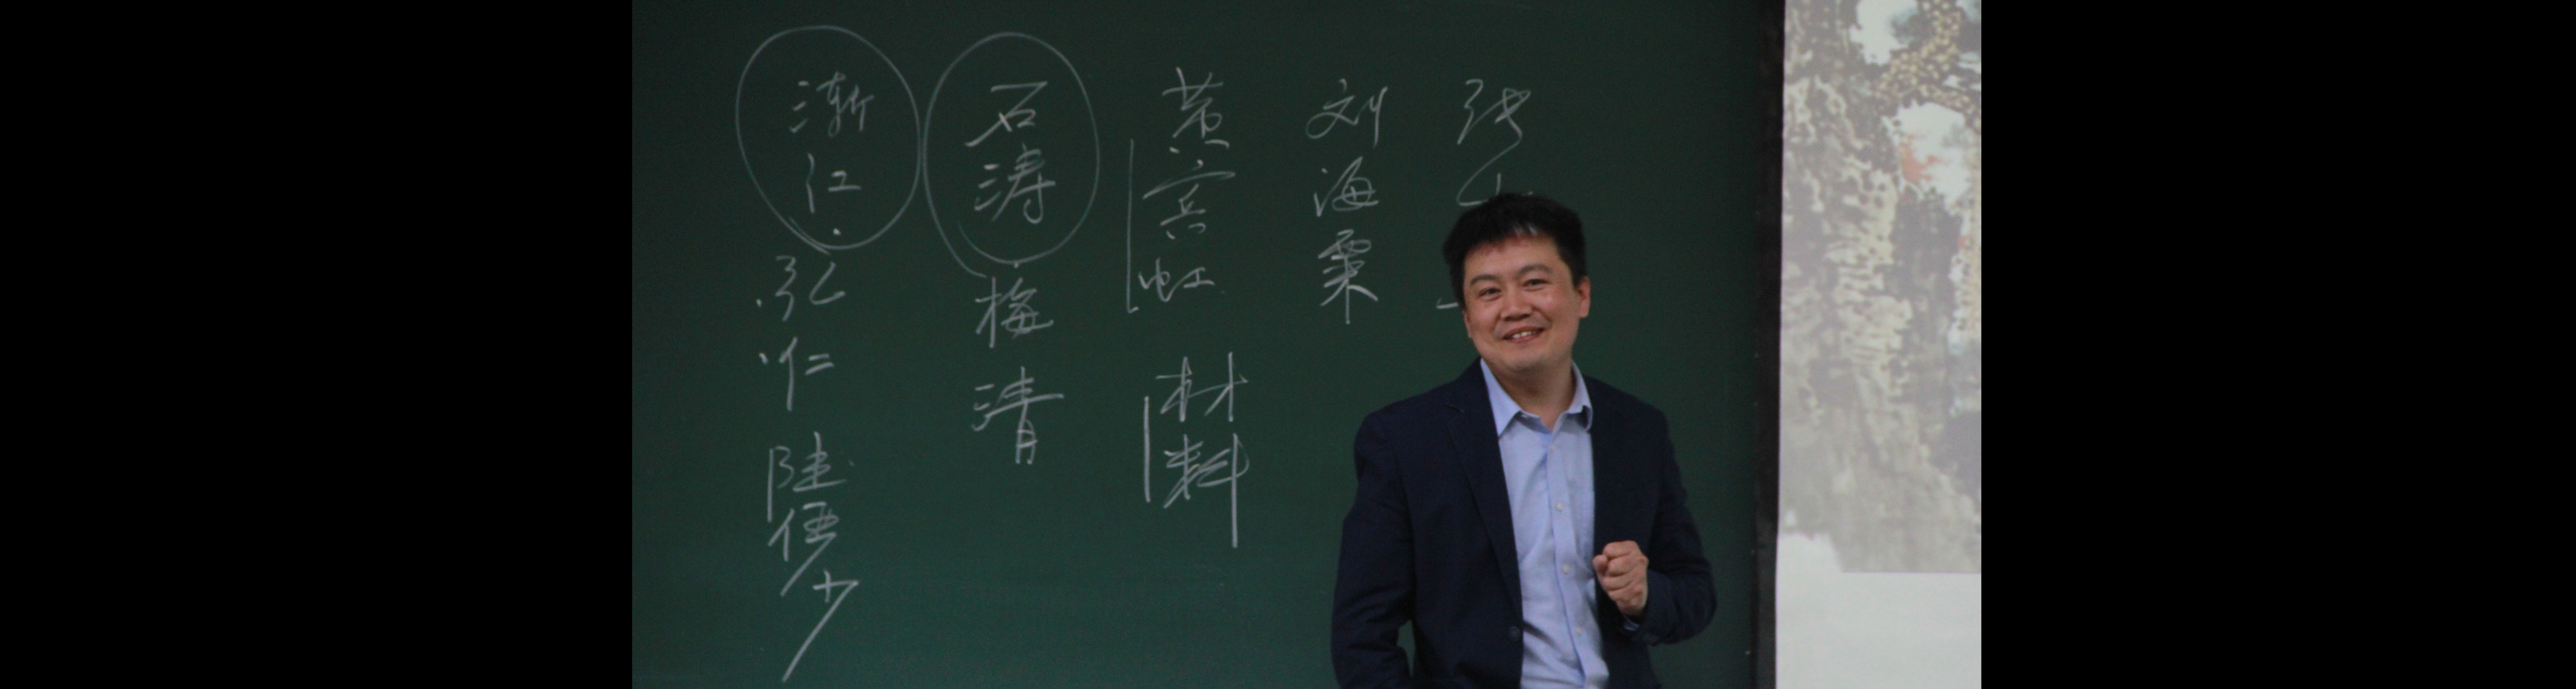 渐江
弘仁
陆俨少
石涛
梅清
黄宾虹
材料
刘海粟
张